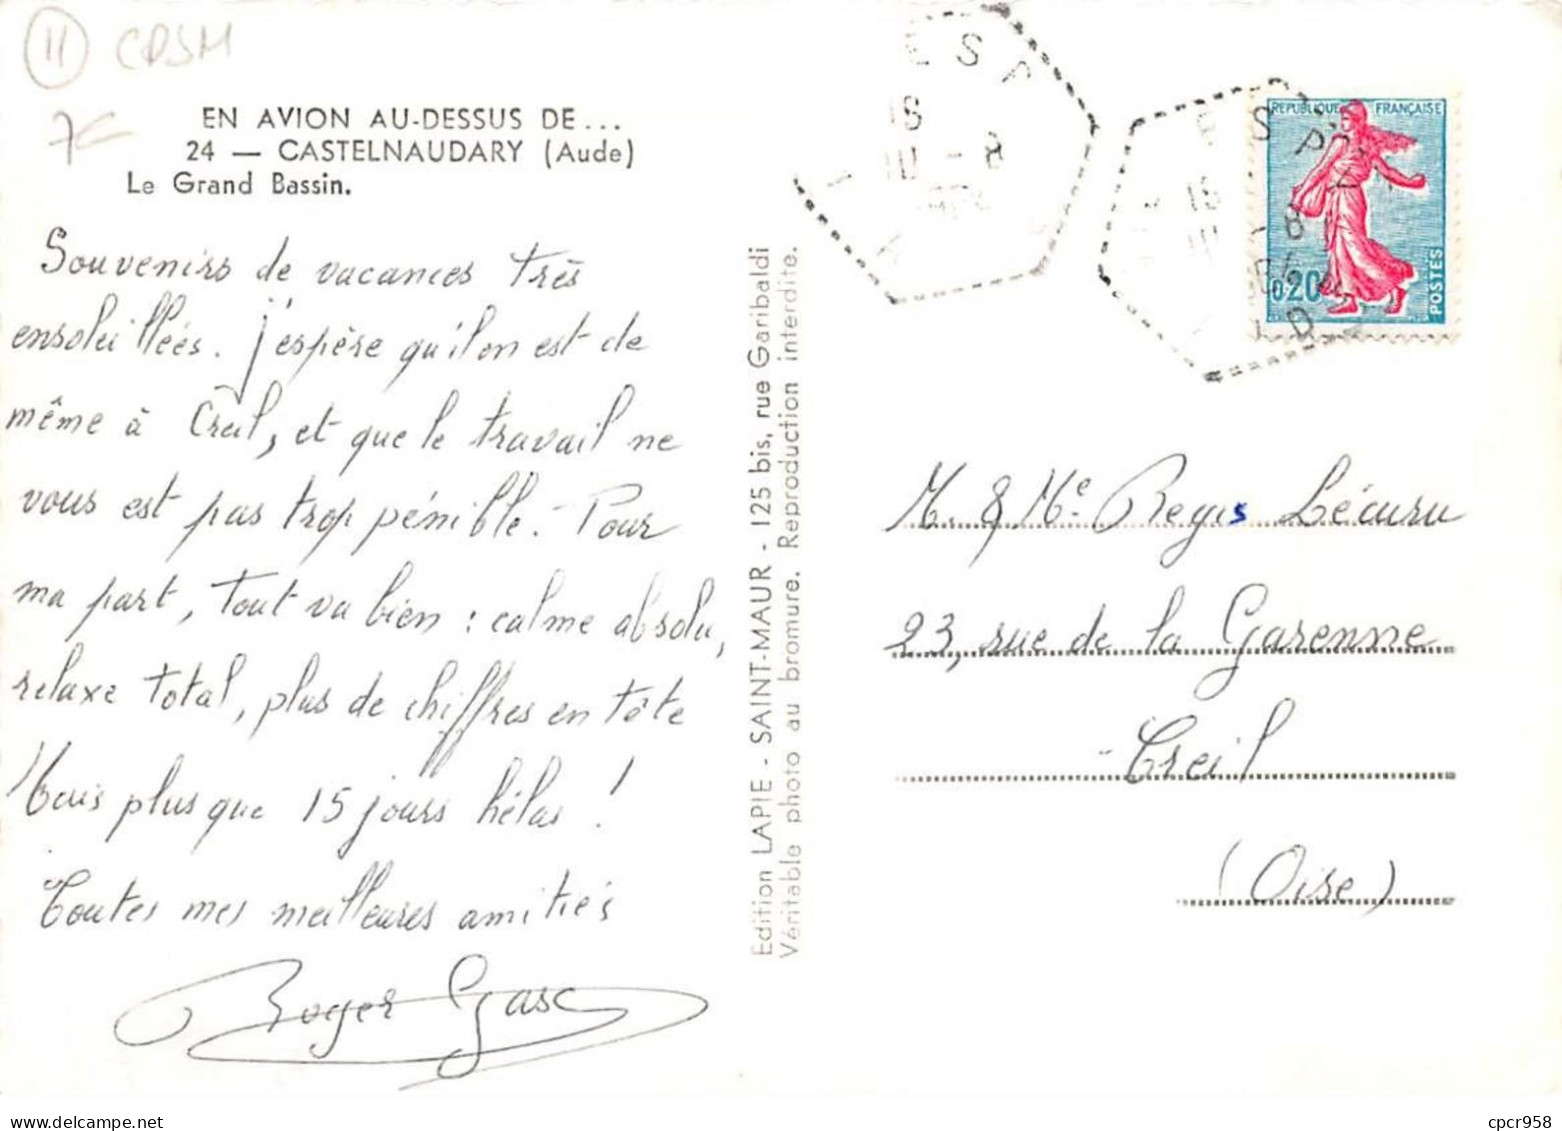 11 CPSM
7€
EN AVION AU-DESSUS DE...
24 — CASTELNAUDARY (Aude)
Le Grand Bassin.
Souvenirs de vacances très
ensoleillées. J'espère qu'il en est de
même à Creil, et que le travail ne
vous est pas trop pénible. - Pour
ma part, tout va bien : calme absolu,
relaxe total, plus de chiffres en tête
Mais plus que 15 jours hélas !
Toutes mes meilleures amitiés
Roger Gasc
Edition LAPIE - SAINT-MAUR - 125 bis, rue Garibaldi
Véritable photo au bromure. Reproduction interdite.
REPUBLIQUE FRANÇAISE
0,20
POSTES
M. & Me Regis Lécuru
23, rue de la Garenne
Creil
(Oise)
cpcr958